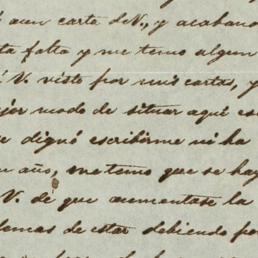 aun carta de V., y acabano
ta falta y me temo algun
V. visto por mis cartas, y
jor modo de situar aquí es
e dignó escribirme ni ha
n año, me temo que se hay
V. de que aumentase la
demas de estar debiendo po